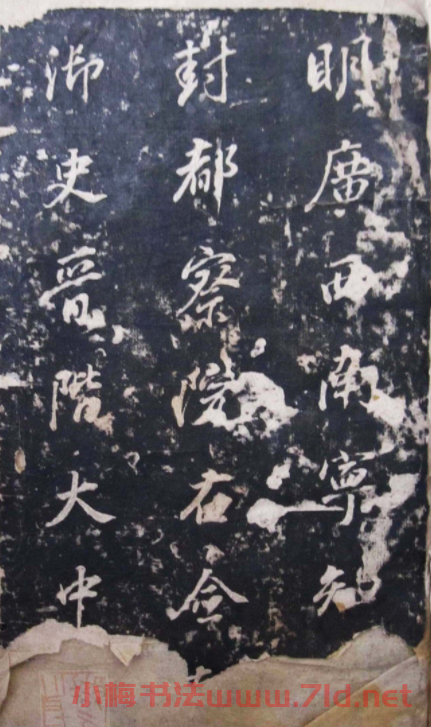 明廣西南寧知
封都察院右僉
御史晉階大中
小梅书法www.7ld.net